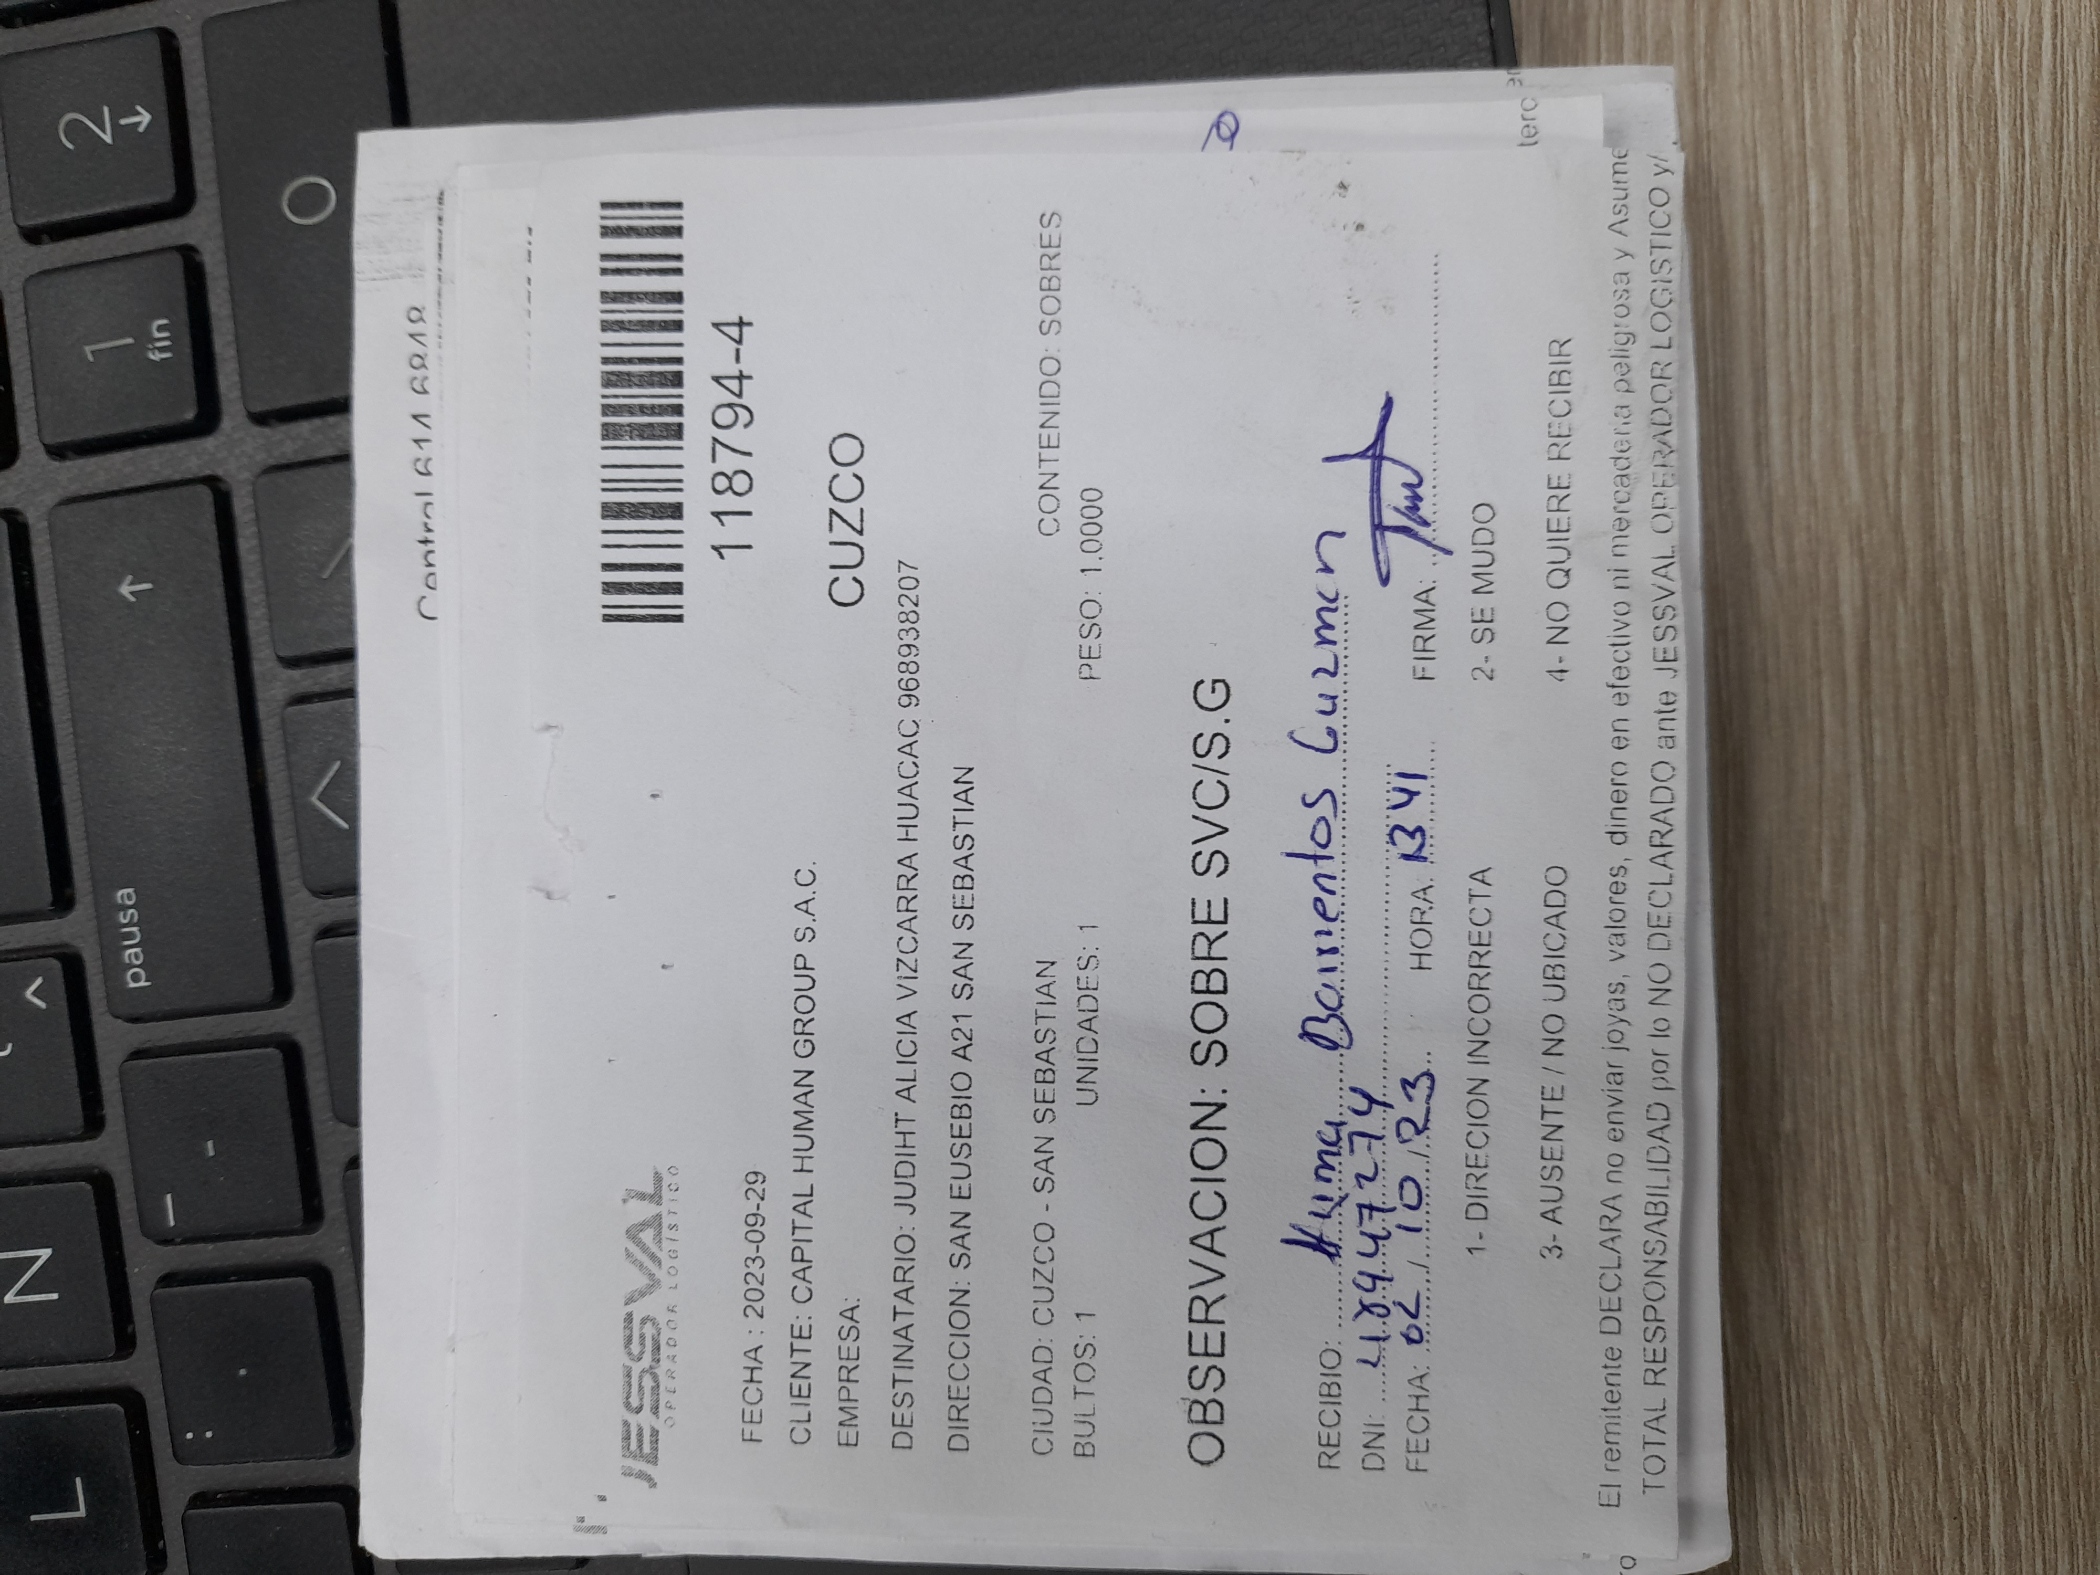 L
N
pausa
1
fin
2
0
JESSVAL
OPERADOR LOGÍSTICO
118794-4
FECHA : 2023-09-29
CLIENTE: CAPITAL HUMAN GROUP S.A.C.
EMPRESA:
CUZCO
DESTINATARIO: JUDIHT ALICIA VIZCARRA HUACAC 968938207
DIRECCION: SAN EUSEBIO A21 SAN SEBASTIAN
CIUDAD: CUZCO - SAN SEBASTIAN
CONTENIDO: SOBRES
BULTOS: 1 UNIDADES: 1 PESO: 1.0000
OBSERVACION: SOBRE SVC/S.G
RECIBIO: Barrientos Guzman
DNI: 48947274
FECHA: 02 / 10 / 23 HORA: 13 41 FIRMA:
1- DIRECION INCORRECTA 2- SE MUDO
3- AUSENTE / NO UBICADO 4- NO QUIERE RECIBIR
El remitente DECLARA no enviar joyas, valores, dinero en efectivo ni mercaderia peligrosa y Asume
TOTAL RESPONSABILIDAD por lo NO DECLARADO ante JESSVAL OPERADOR LOGISTICO y/